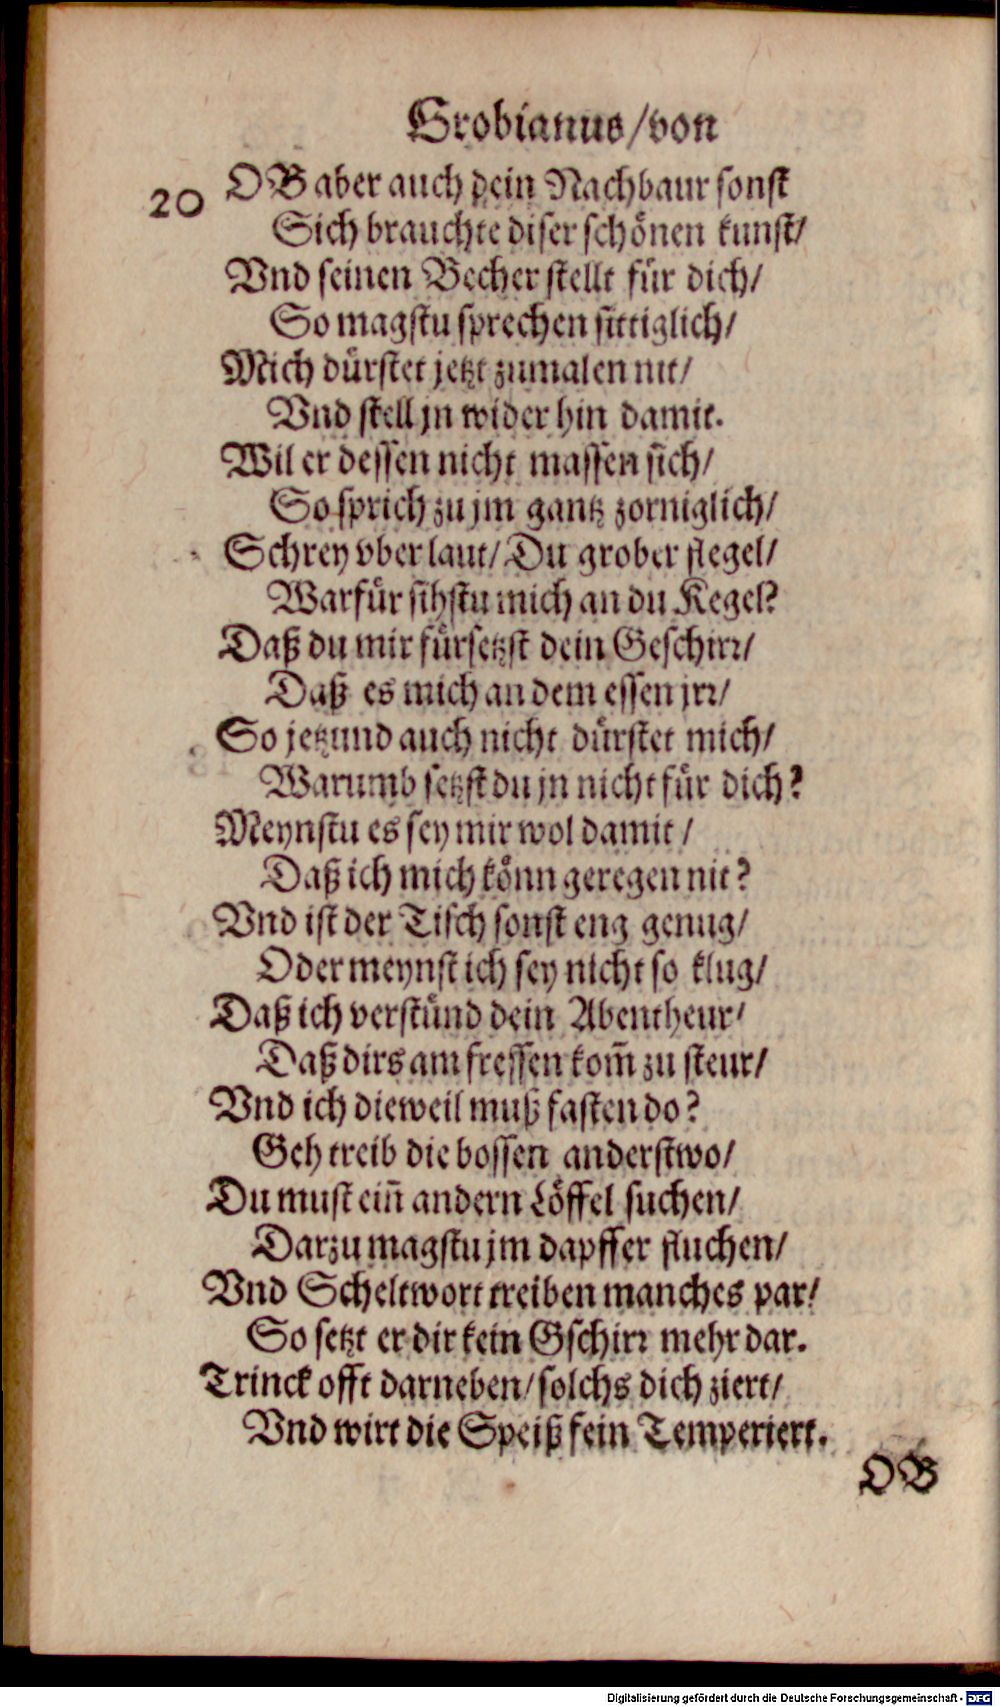 Grobianus/von
20 OB aber auch dein Nachbaur sonst
Sich brauchte diser schönen kunst/
Vnd seinen Becher stellt für dich/
So magstu sprechen sittiglich/
Mich dürstet jetzt zumalen nit/
Vnd stell jn wider hin damit.
Wil er dessen nicht massen sich/
So sprich zu jm gantz zorniglich/
Schrey vber laut/ Du grober flegel/
Warfür sihstu mich an du Kegel?
Daß du mir fürsetzst dein Geschirr/
Daß es mich an dem essen jrr/
So jetzund auch nicht dürstet mich/
Warumb setzst du jn nicht für dich?
Meynstu es sey mir wol damit/
Daß ich mich könn geregen nit?
Vnd ist der Tisch sonst eng genug/
Oder meynst ich sey nicht so klug/
Daß ich verstünd dein Abentheur/
Daß dirs am fressen kom̄ zu steur/
Vnd ich dieweil muß fasten do?
Geh treib die bossen anderstwo/
Du must ein̄ andern Löffel suchen/
Darzu magstu jm dapffer fluchen/
Vnd Scheltwort treiben manches par/
So setzt er dir kein Gschirr mehr dar.
Trinck offt darneben/ solchs dich ziert/
Vnd wirt die Speiß fein Temperiert.
OB
Digitalisierung gefördert durch die Deutsche Forschungsgemeinschaft - DFG